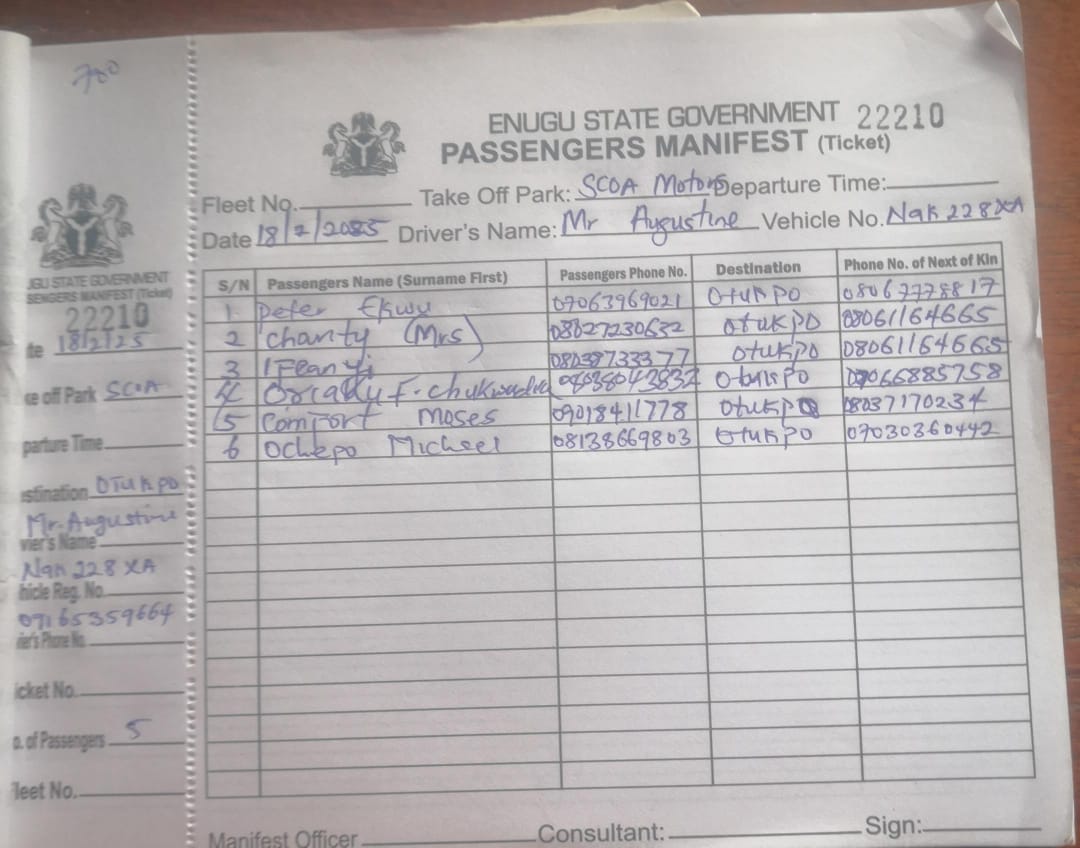 700
ENUGU STATE GOVERNMENT 22210
PASSENGERS MANIFEST (Ticket)
Fleet No. Take Off Park: SCOA Motors Departure Time:
Date 18/2/2025 Driver's Name: Mr Augustine Vehicle No. Nak 228 XA
S/N Passengers Name (Surname First) Passengers Phone No. Destination Phone No. of Next of Kin
1 peter Ekwu 07063969021 Otukpo 08067778817
2 charity (Mrs) 08027230632 Otukpo 08061164665
3 IFeanyi 08038733377 Otukpo 08061164665
4 F. Otukpo 07066885758
5 Comfort Moses 09018411778 Otukpo 08037170234
6 Ochepo Micheel 08138669803 Otukpo 07030360442
Manifest Officer Consultant: Sign:
UGU STATE GOVERNMENT
SENGERS MANIFEST (Ticket)
22210
te 18/2/25
ke off Park SCOA
parture Time
stination OTUKPO
Mr. Augustine
ver's Name
Nak 228 XA
hicle Reg. No.
07165359664
ver's Phone No
icket No.
o. of Passengers 5
leet No.